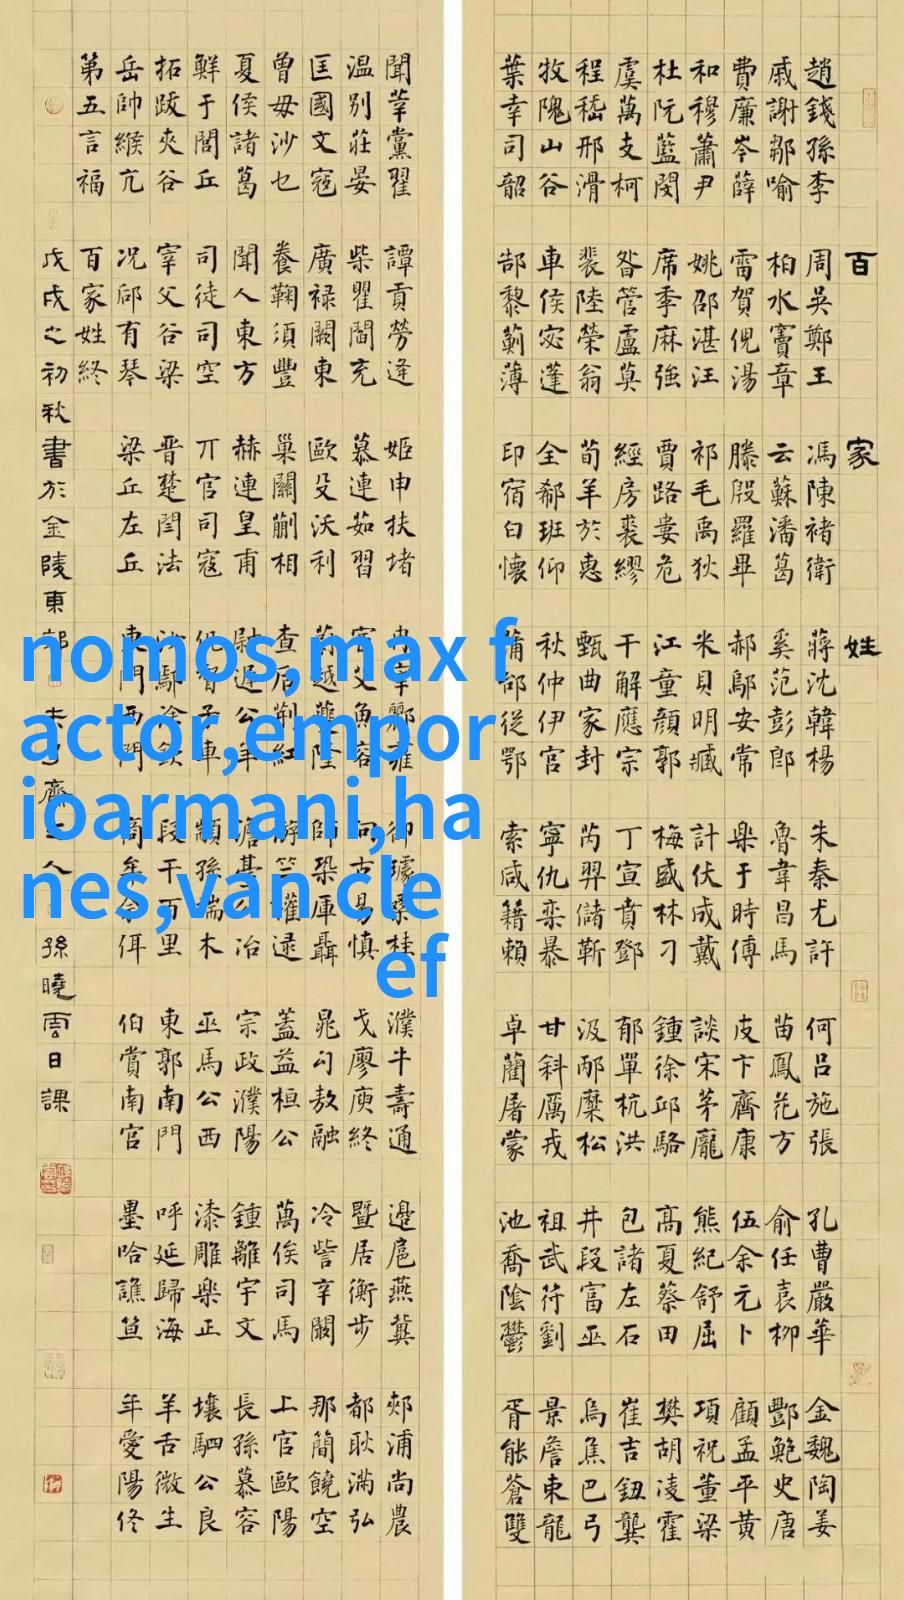 百家姓
趙錢孫李 周吳鄭王 馮陳褚衛 蔣沈韓楊 朱秦尤許 何呂施張 孔曹嚴華 金魏陶姜
戚謝鄒喻 柏水竇章 云蘇潘葛 奚范彭郎 魯韋昌馬 苗鳳花方 俞任袁柳 酆鮑史唐
費廉岑薛 雷賀倪湯 滕殷羅畢 郝鄔安常 樂于時傅 皮卞齊康 伍余元卜 顧孟平黃
和穆蕭尹 姚邵湛汪 祁毛禹狄 米貝明臧 計伏成戴 談宋茅龐 熊紀舒屈 項祝董梁
杜阮藍閔 席季麻強 賈路婁危 江童顏郭 梅盛林刁 鍾徐邱駱 高夏蔡田 樊胡凌霍
虞萬支柯 昝管盧莫 經房裘繆 干解應宗 丁宣賁鄧 郁單杭洪 包諸左石 崔吉鈕龔
程嵇邢滑 裴陸榮翁 荀羊於惠 甄曲家封 芮羿儲靳 汲邴糜松 井段富巫 烏焦巴弓
牧隗山谷 車侯宓蓬 全郗班仰 秋仲伊宮 寧仇欒暴 甘斜厲戎 祖武符劉 景詹束龍
葉幸司韶 郜黎薊薄 印宿白懷 蒲邰從鄂 索咸籍賴 卓藺屠蒙 池喬陰鬱 胥能蒼雙
聞莘黨翟 譚貢勞逄 姬申扶堵 冉宰酈雍 郤璩桑桂 濮牛壽通 邊扈燕冀 郟浦尚農
温別莊晏 柴瞿閻充 慕連茹習 宦艾魚容 向古易慎 戈廖庾終 暨居衡步 都耿滿弘
匡國文寇 廣祿闕東 歐殳沃利 蔚越夔隆 師鞏厙聶 晁勾敖融 冷訾辛闞 那簡饒空
曾毋沙乜 養鞠須豐 巢關蒯相 查后荊紅 游竺權逯 蓋益桓公 萬俟司馬 上官歐陽
夏侯諸葛 聞人東方 赫連皇甫 尉遲公羊 澹臺公冶 宗政濮陽 鍾離宇文 長孫慕容
鮮于閭丘 司徒司空 亓官司寇 仉督子車 顓孫端木 巫馬公西 漆雕樂正 壤駟公良
拓跋夾谷 宰父谷梁 晉楚閆法 汝鄢涂欽 段干百里 東郭南門 呼延歸海 羊舌微生
岳帥緱亢 况郈有琴 梁丘左丘 東門西門 商牟佘佴 伯賞南宮 墨哈譙笪 年愛陽佟
第五言福 百家姓終
戊戌之初秋書於金陵東郊未了齋主人孫曉雲日課
nomos,max f
actor,empor
ioarmani,ha
nes,van cle
ef